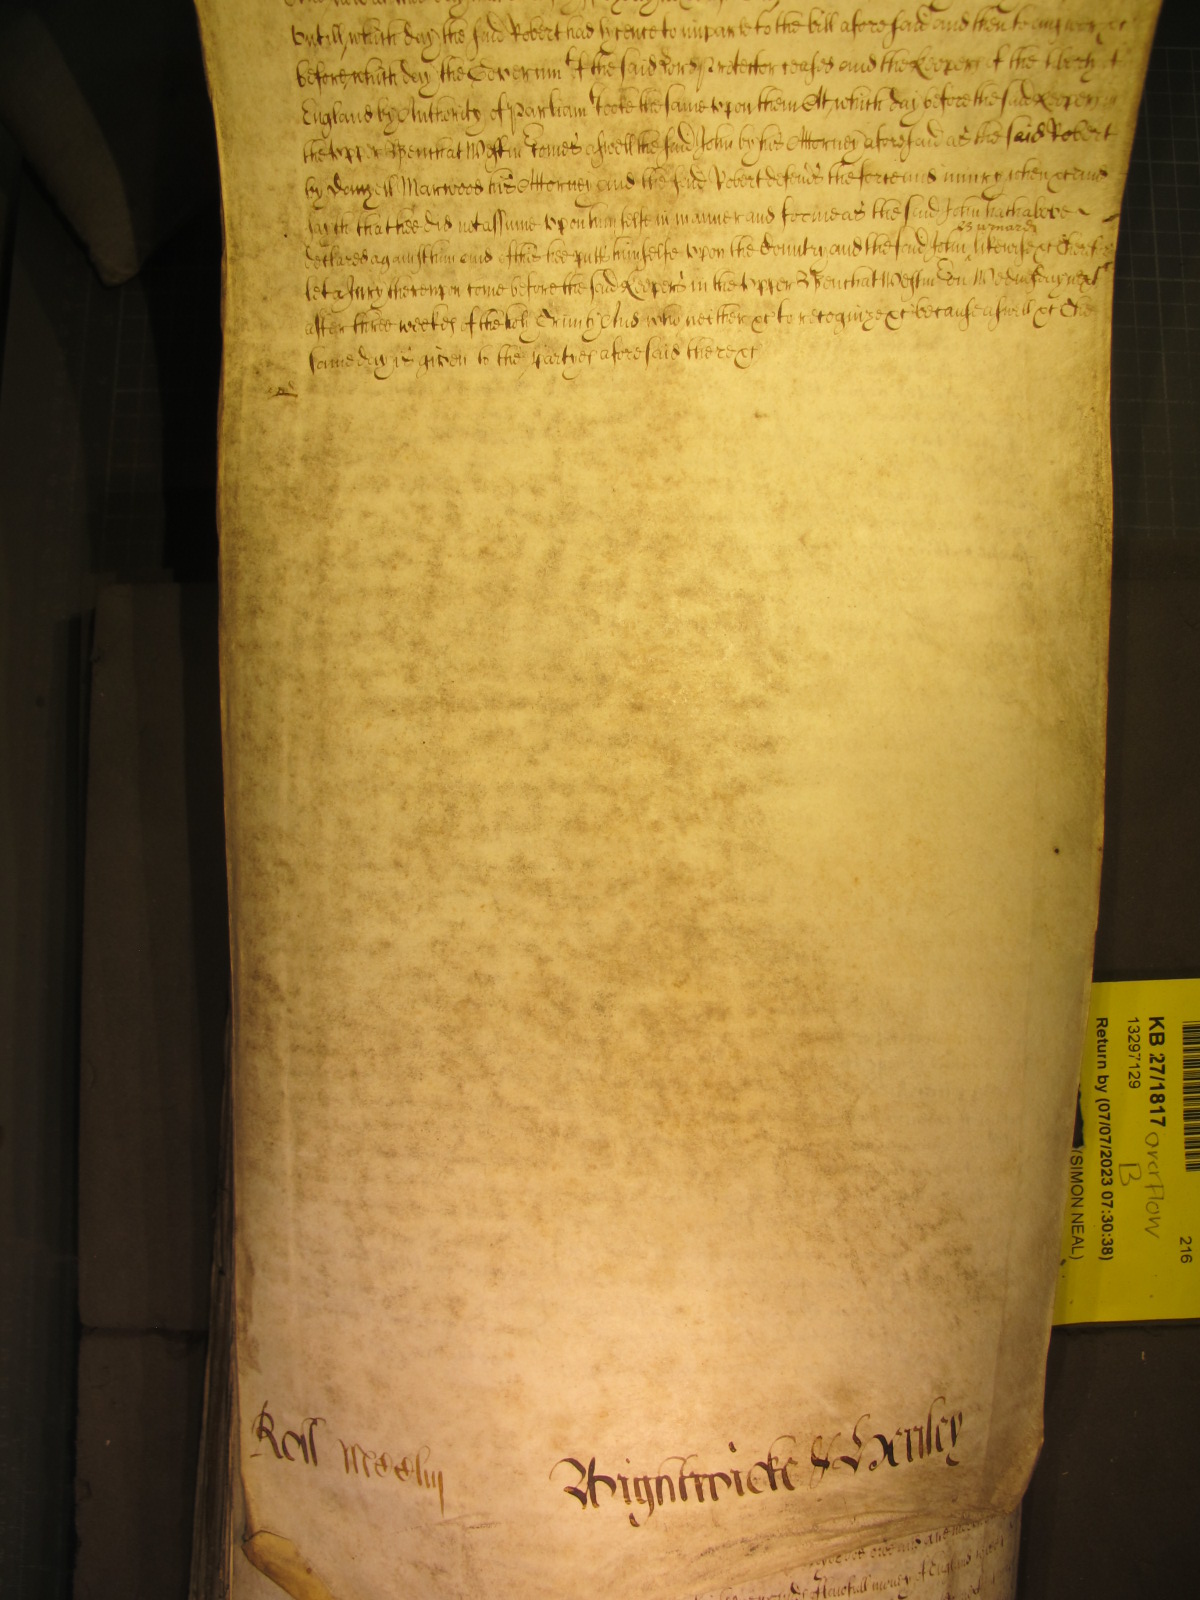 untill which day the said Robert had lycence to imparle to the bill aforesaid and then to answer &c
before which day the Governmt of the said Lord Protector ceased and the Keepers of the liberty of
England by Authority of Parliamt tooke the same upon them Att which day before the said Keepers in
the upper Bench at Westm comes aswell the said John by his Attorney aforesaid as the said Robert
by Danyell Marwood his Attorney and the said Robert defends the force and iniury when &c and
saith that hee did not assume upon himselfe in manner and forme as the said John hath above
declared against him and of this hee putts himselfe upon the Country and the said John likewise &c Therefore
let a Jury thereupon come before the said Keepers in the upper Bench at Westm on Wednesday next
after three weekes of the holy Trinity And who neither &c to recognize &c because aswell &c The
same day is given to the partyes aforesaid there &c
Roll
Wightwicke & Henley
of lawfull money of England
KB 27/1817 overflow
B
13297129
Return by (07/07/2023 07:30:38)
(SIMON NEAL)
216